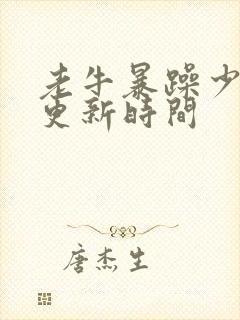 老牛暴躁少
更新時間
唐杰生